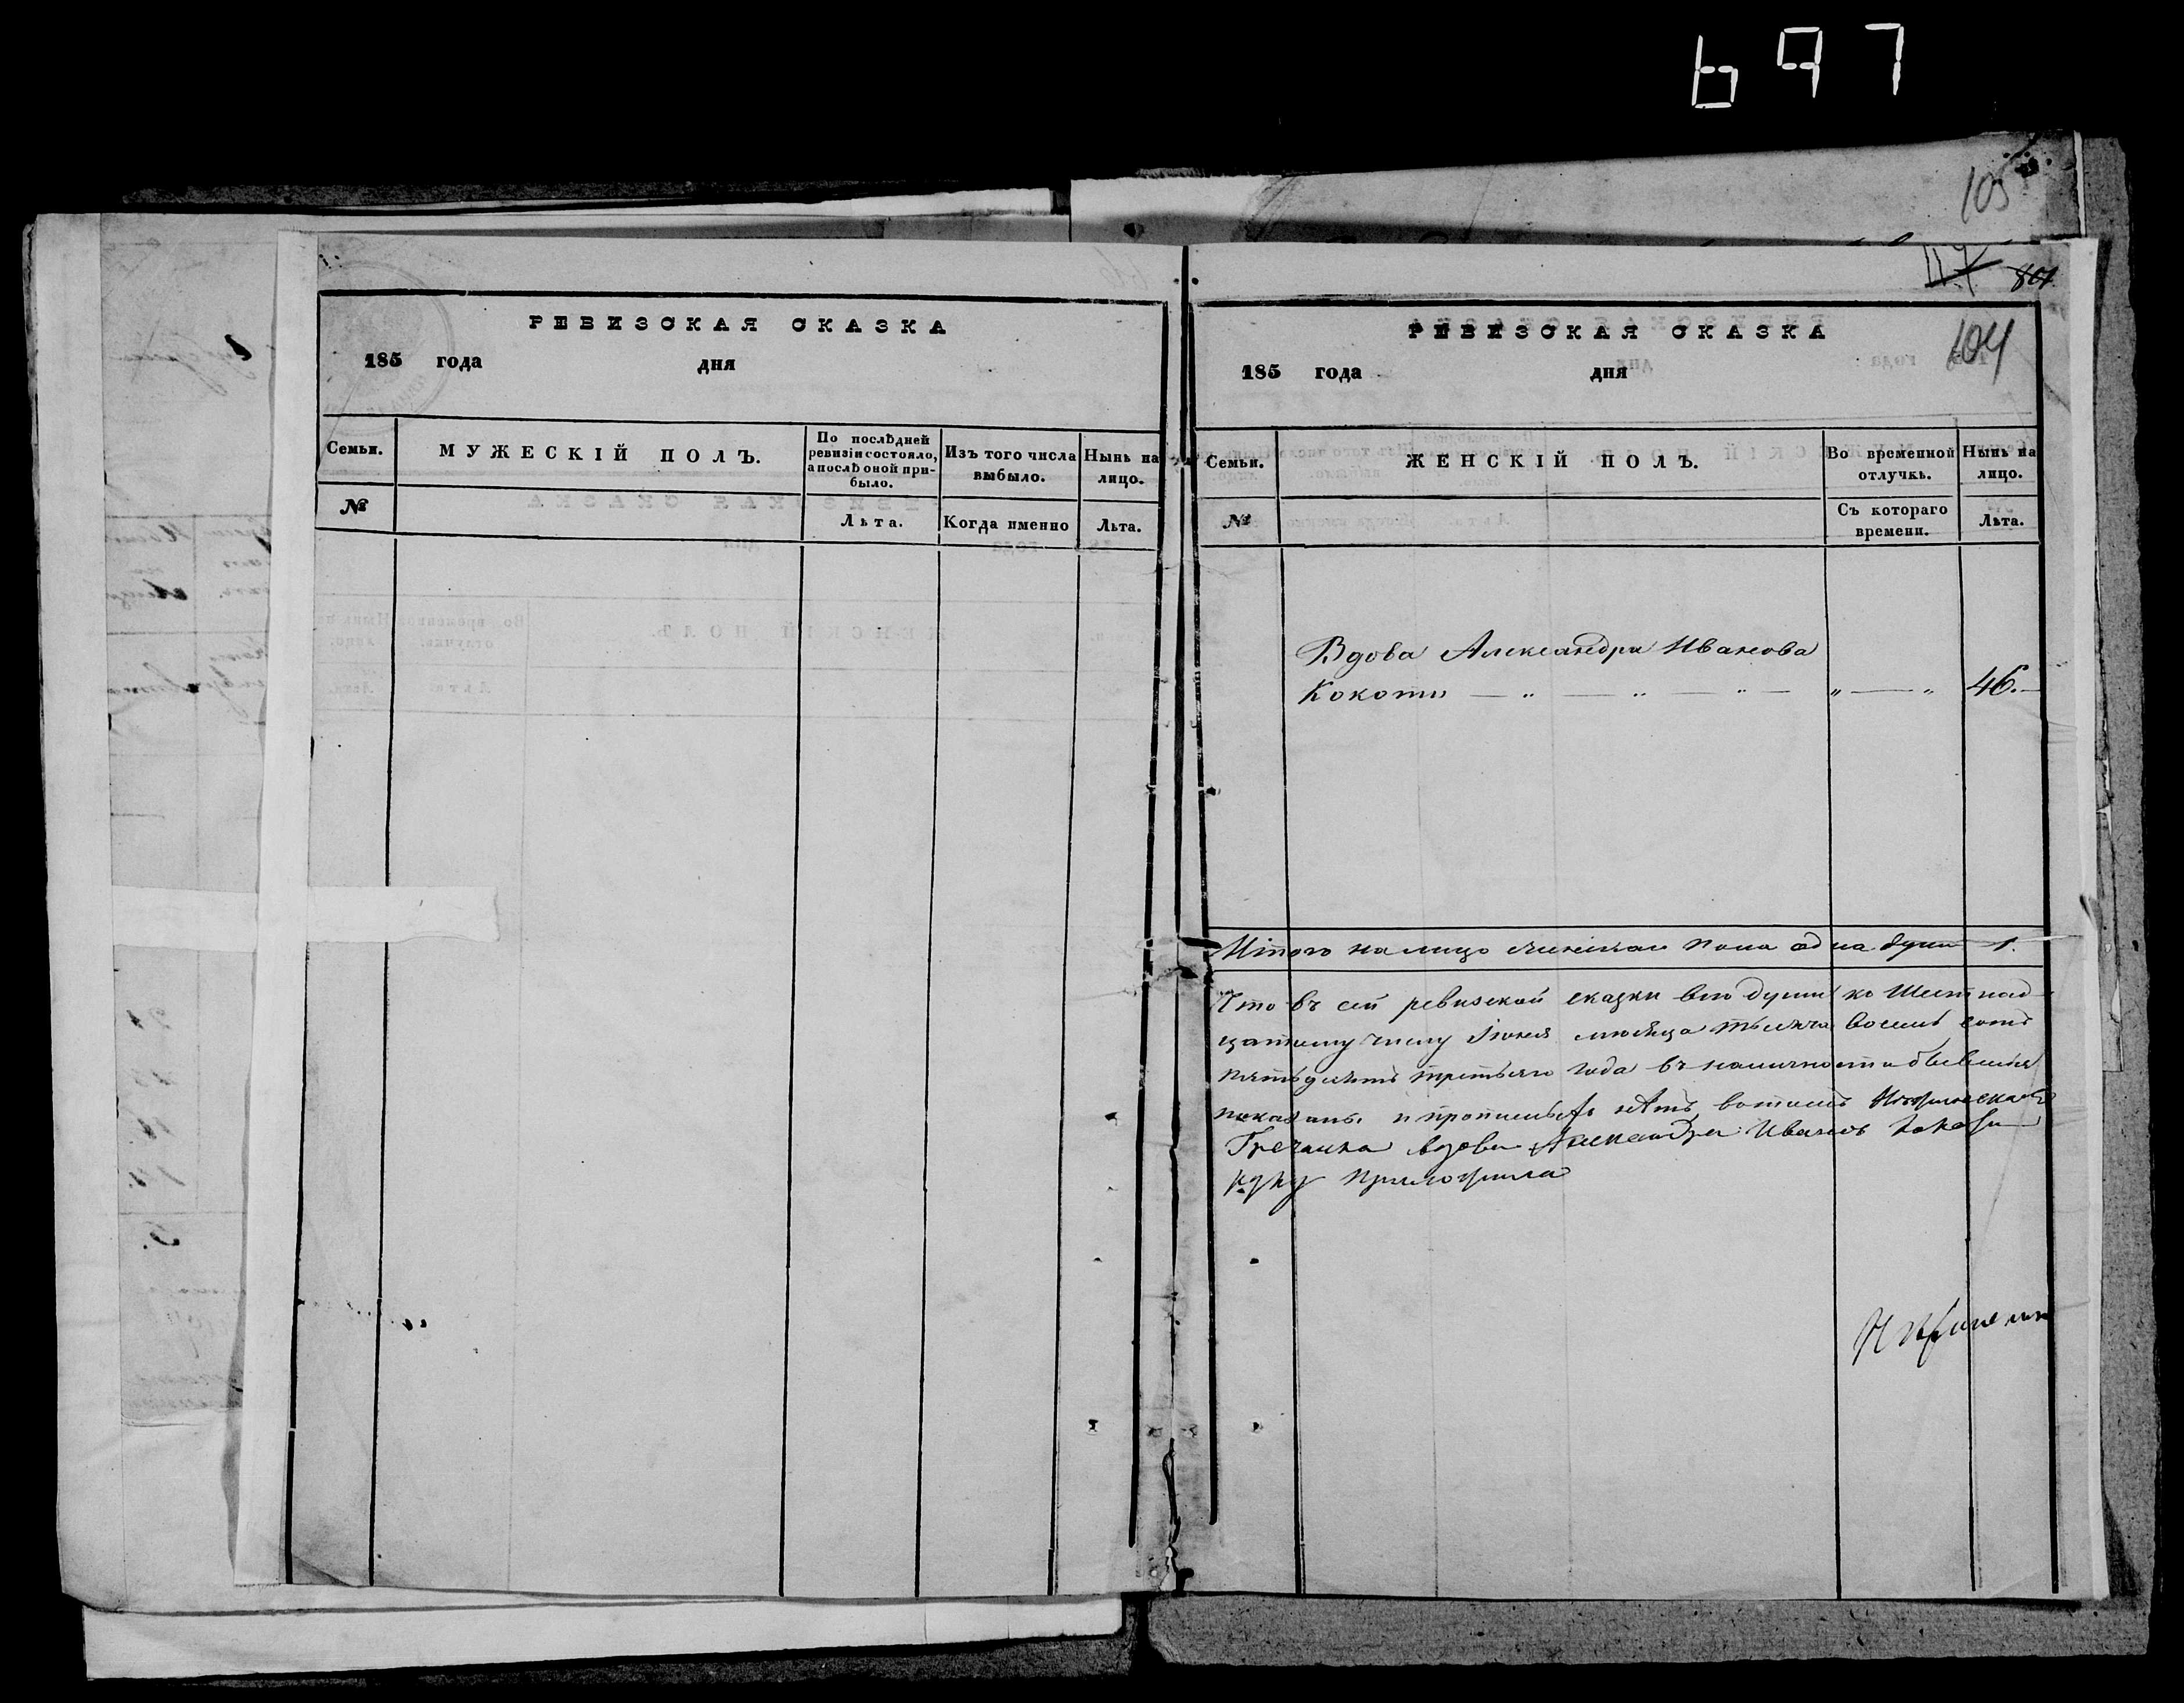 697
105
117 801
РЕВИЗСКАЯ СКАЗКА
185 года дня
Семьи.
МУЖЕСКІЙ ПОЛЪ.
По послѣдней
ревизіи состояло,
а послѣ оной при-
было.
Изъ того числа
выбыло.
Нынѣ на
лицо.
№
Лѣта.
Когда именно
Лѣта.
РЕВИЗСКАЯ СКАЗКА
104
185 года дня
Семьи.
ЖЕНСКІЙ ПОЛЪ.
Во временной
отлучкѣ.
Нынѣ на
лицо.
№
Съ котораго
времени.
Лѣта.
Вдова Александра Иванова
Кокоти — „ — „ — „ — „ — „ 46.
Итого на лицо женскаго пола одна душа 1.
Что въ сей ревизской сказки всѣ души ко Шестнад-
цатому числу Іюня мѣсяца тысяча восемь сотъ
пятьдесятъ третьяго года въ наличности бывшія
показаны и прописныхъ нѣтъ, вотомъ
Гречанка вдова Александра Иванов
руку приложила